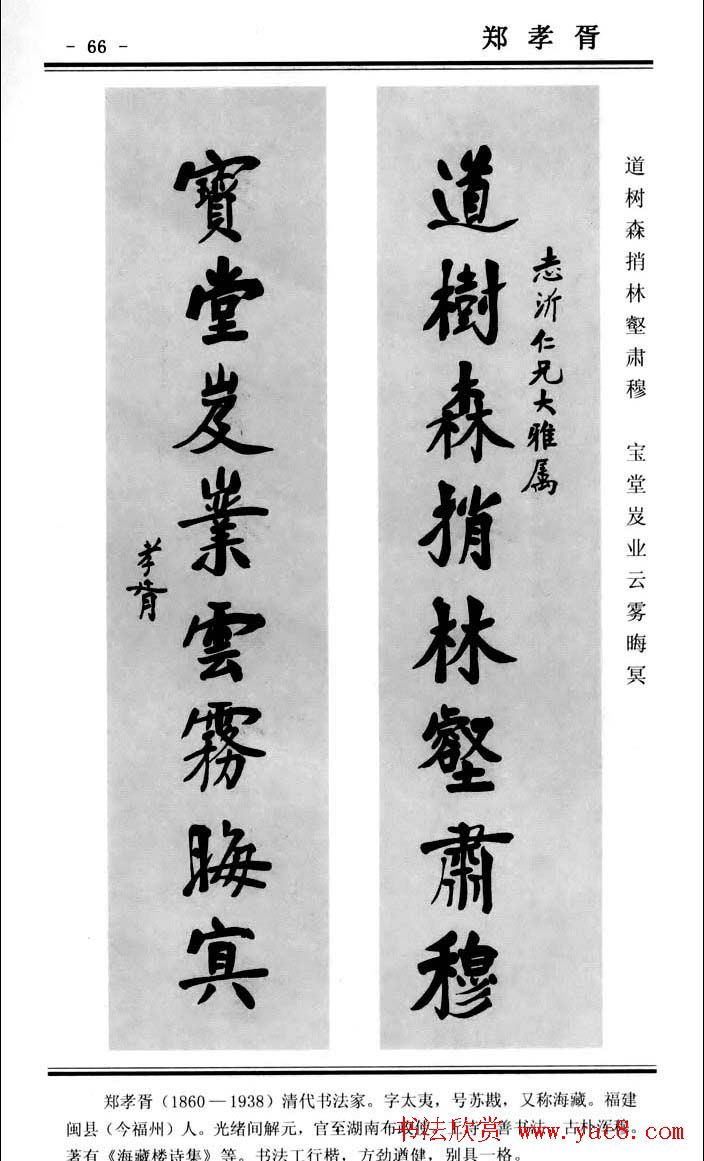 - 66 -
郑孝胥
道树森捎林壑肃穆 宝堂岌业云雾晦冥
志沂仁兄大雅属
道樹森捎林壑肅穆
寶堂岌業雲霧晦冥
孝胥
郑孝胥（1860—1938）清代书法家。字太夷，号苏戡，又称海藏。福建
闽县（今福州）人。光绪间解元，官至湖南布政使。工诗，善书法，古朴浑穆。
著有《海藏楼诗集》等。书法工行楷，方劲遒健，别具一格。
书法欣赏 www.yac8.com